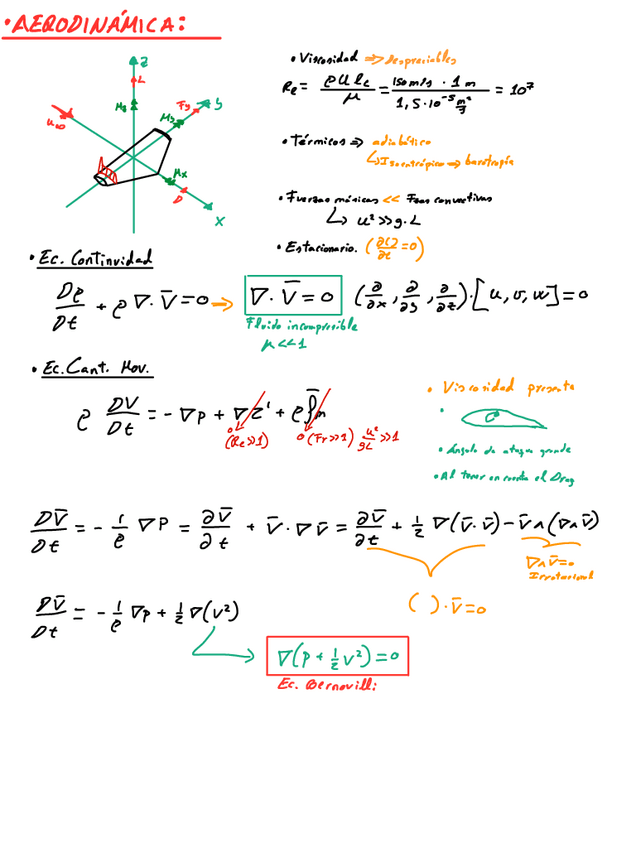 • AERODINÁMICA:
z
L
Mz
My
Fy
y
u∞
Mx
D
x
• Viscosidad ⇒ Despreciables
Re = ρ U lc / μ = 150 m/s · 1 m / 1,5·10⁻⁵ m²/s = 10⁷
• Térmicos ⇒ adiabático
↳ Isoentrópico ⇒ barotropía
• Fuerzas másicas << Fzas convectivas
↳ u² >> g·L
• Estacionario. (∂()/∂t = 0)
• Ec. Continuidad
Dρ/Dt + ρ ∇·V̄ = 0 → ∇·V̄ = 0 (∂/∂x, ∂/∂y, ∂/∂z)·[u, v, w] = 0
Fluido incompresible
μ << 1
• Ec. Cant. Mov.
ρ DV̄/Dt = -∇p + ∇τ' + ρ f̄m
0 (Re >> 1) 0 (Fr >> 1) u²/gL >> 1
• Viscosidad presente
• Ángulo de ataque grande
• Al tener en cuenta el Drag
DV̄/Dt = -1/ρ ∇P = ∂V̄/∂t + V̄·∇V̄ = ∂V̄/∂t + 1/2 ∇(V̄·V̄) - V̄∧(∇∧V̄)
∇∧V̄ = 0
Irrotacional
( )·V̄ = 0
DV̄/Dt = -1/ρ ∇p + 1/2 ∇(v²)
∇(p + 1/2 v²) = 0
Ec. Bernoulli